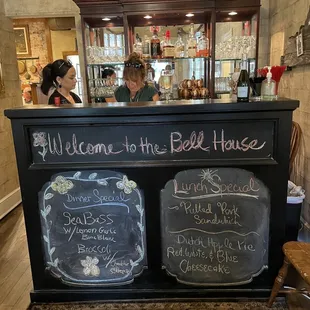 Welcome to the Bell House
Dinner Special
Sea Bass
w/ Lemon Garlic
Broccoli
Lunch Special
Pulled Pork
Sandwich
Dutch Apple Pie
Red, White, & Blue
Cheesecake